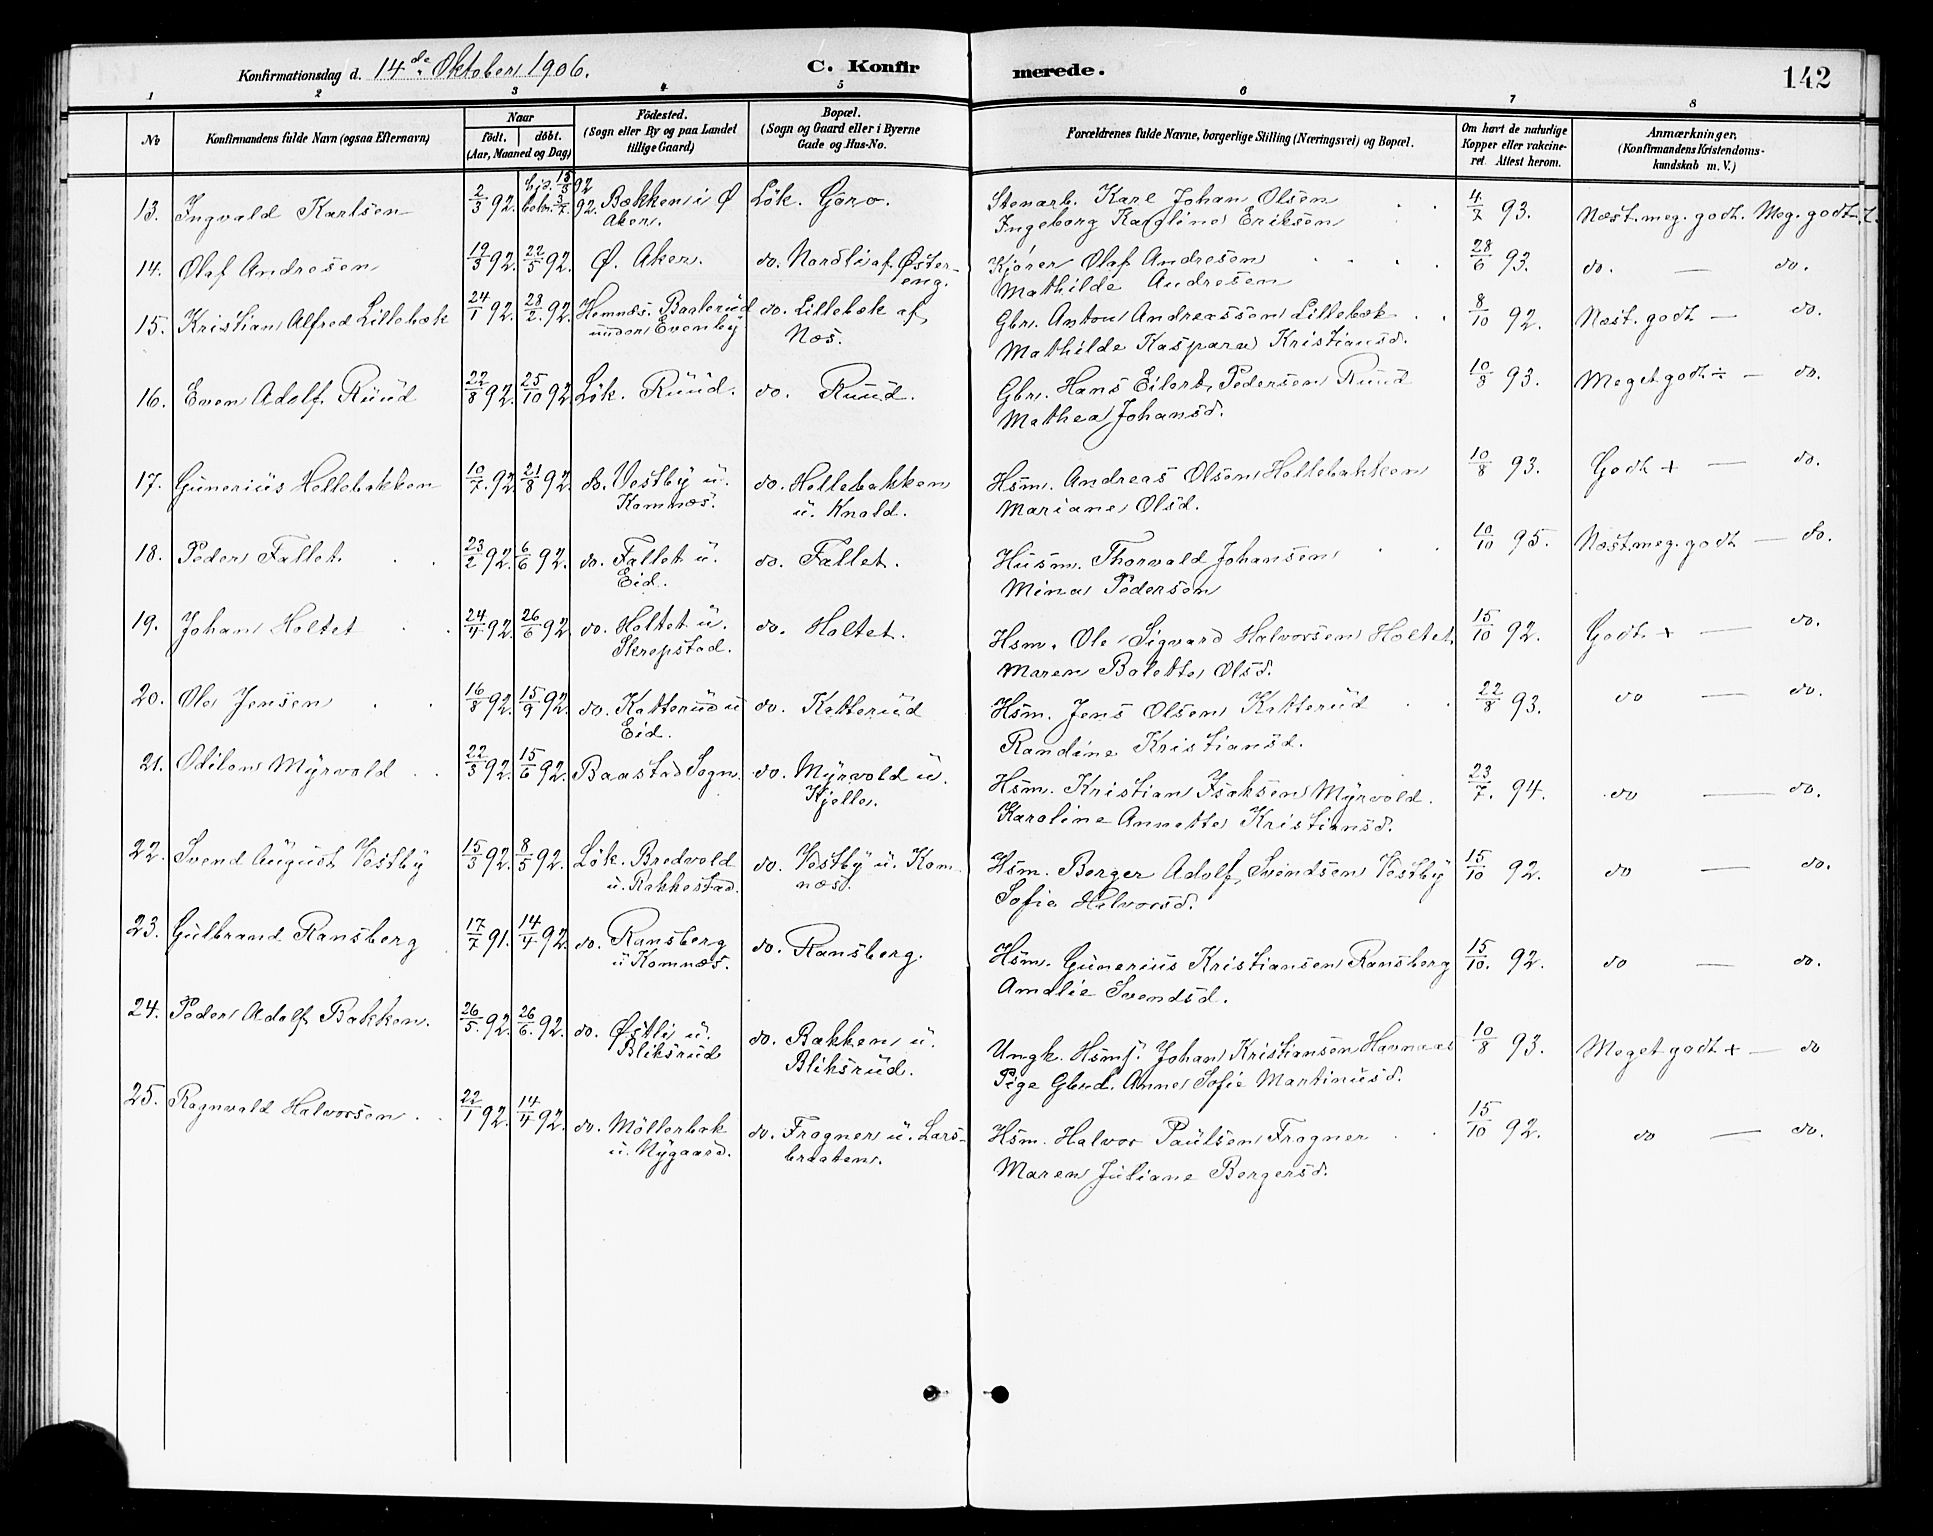 Konfirmationsdag d. 14de Oktober 1906.
C. Konfirmerede.
142
1 2 3 4 5 6 7 8
No
Konfirmandens fulde Navn (ogsaa Efternavn)
Naar
født. døbt.
(Aar, Maaned og Dag)
Fødested.
(Sogn eller By og paa Landet
tillige Gaard)
Bopæl.
(Sogn og Gaard eller i Byerne
Gade og Hus-No.
Forældrenes fulde Navne, borgerlige Stilling (Næringsvei) og Bopæl.
Om havt de naturlige
Kopper eller vakcine-
ret Attest herom.
Anmærkninger.
(Konfirmandens Kristendoms-
kundskab m. V.)
13. Ingvald Karlsen 2/3 92. hjd. 15/5 92 bekr. 3/7 92. Bækken i Ø Aker. Løk. Garo. Stenarb. Karl Johan Olsen 4/7 93. Næst. meg. godt. Meg. godt
Ingeborg Karoline Eriksen
14. Olaf Andresen 19/3 92. 22/5 92. Ø. Aker. do. Nordli af Østereng. Kjører Olaf Andresen 28/6 93. do. — do.
Mathilde Andresen
15. Kristian Alfred Lillebæk 24/1 92. 28/2. 92. Hemnæs. Baalerud under Evenby do. Lillebæk af Næs. Gbr. Anton Andreassen Lillebæk 8/10 92. Næst. godt — do.
Mathilde Kaspara Kristiansd.
16. Even Adolf Ruud 22/8 92. 25/10 92. Løk. Ruud. do. Ruud. Gbr. Hans Eilert Pedersen Ruud 10/8 93. Meget godt ÷ — do.
Mathea Johansd.
17. Gunerius Hellebakken 10/7. 92. 21/8 92. do. Vestby u. Komnæs. do. Hellebakken u. Knold. Hsm. Andreas Olsen Hellebakken 10/8 93. Godt + — do.
Mariane Olsd.
18. Peder Fallet 23/2 92. 6/6 92. do. Fallet u. Eid. do. Fallet. Husm. Thorvald Johansen 10/10 95. Næst. meg. godt — do.
Mina Pedersen
19. Johan Holtet 24/4 92. 26/6 92. do. Holtet u. Skrepstad. do. Holtet. Hsm. Ole Sigvard Halvorsen Holtet 15/10 92. Godt + — do.
Maren Bolette Olsd.
20. Ole Jensen 16/8 92. 15/9 92. do. Katterud u Eid. do. Katterud Hsm. Jens Olsen Katterud 22/8 93. do — do.
Randine Kristiansd.
21. Odilon Myrvold 22/3 92. 15/6 92. Baastad Sogn. do. Myrvold u. Kjelle. Hsm. Kristian Isaksen Myrvold. 23/7. 94. do — do.
Karoline Annette Kristiansd.
22. Svend August Vestby 15/3 92. 8/5 92. Løk. Bredvold u. Rakkestad. do. Vestby u. Komnæs. Hsm. Berger Adolf Svendsen Vestby 15/10 92. do — do.
Sofie Halvorsd.
23. Gulbrand Ransberg 17/7 91. 14/4 92. do. Ransberg u Komnæs. do. Ransberg. Hsm. Gunerius Kristiansen Ransberg 15/10. 92. do — do.
Amalie Svendsd.
24. Peder Adolf Bakken. 26/5. 92. 26/6. 92. do. Østli u. Bliksrud do. Bakken u. Bliksrud. Ungk. Hsmf. Johan Kristiansen Havnaas 10/8 93. Meget godt + — do
Pige Gbrd. Anne Sofie Martinusd.
25. Ragnvald Halvorsen 22/1 92. 14/4 92. do. Møllerbæk u. Nygaard. do. Frogner u. Larsbraaten. Hsm. Halvor Paulsen Frogner 15/10 92. do — do.
Maren Juliane Bergersd.